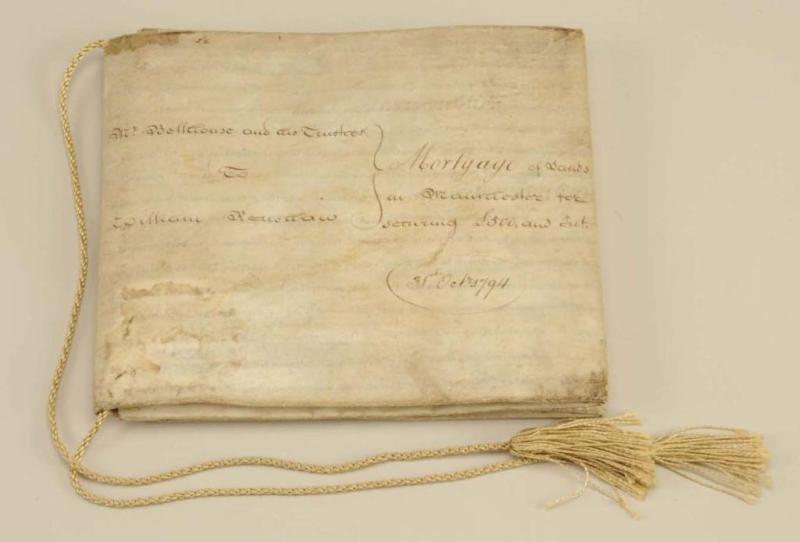 Mr. Bellhouse and his Trustees
To
William Renshaw
Mortgage of Lands
in Manchester for
securing £500, and Int.
31st Octr. 1794